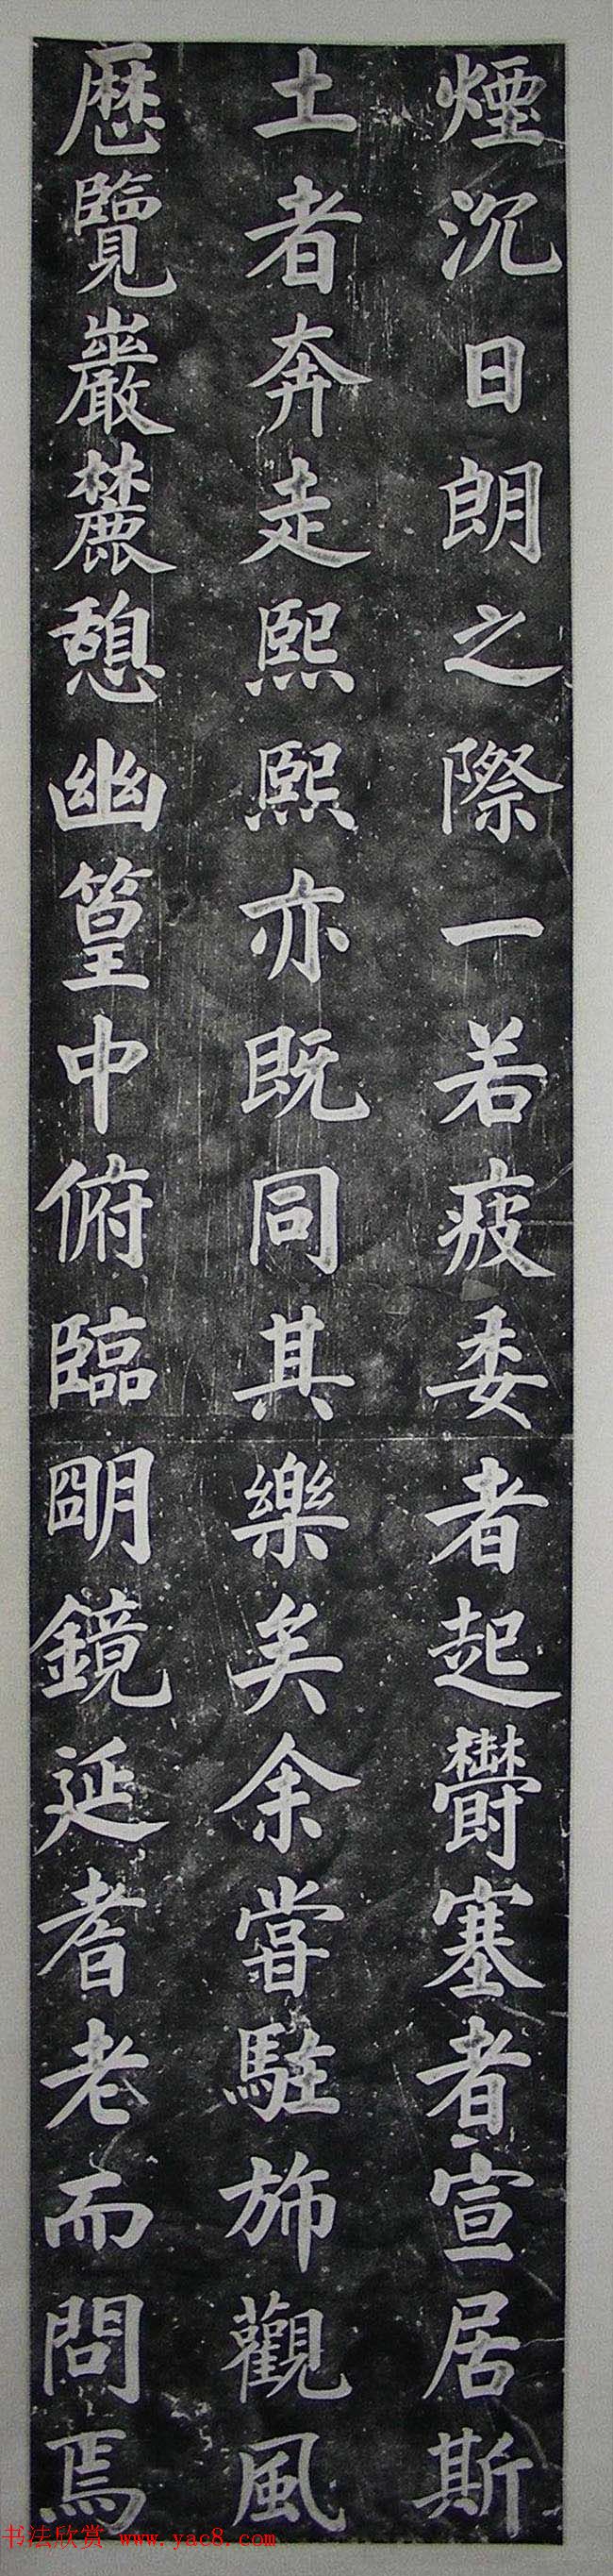 煙沉日朗之際一若疲委者起欝塞者宣居斯
土者奔走熙熙亦既同其樂矣余嘗駐斾觀風
歷覽巖麓憩幽篁中俯臨朙鏡延耆老而問焉
书法欣赏 www.yac8.com